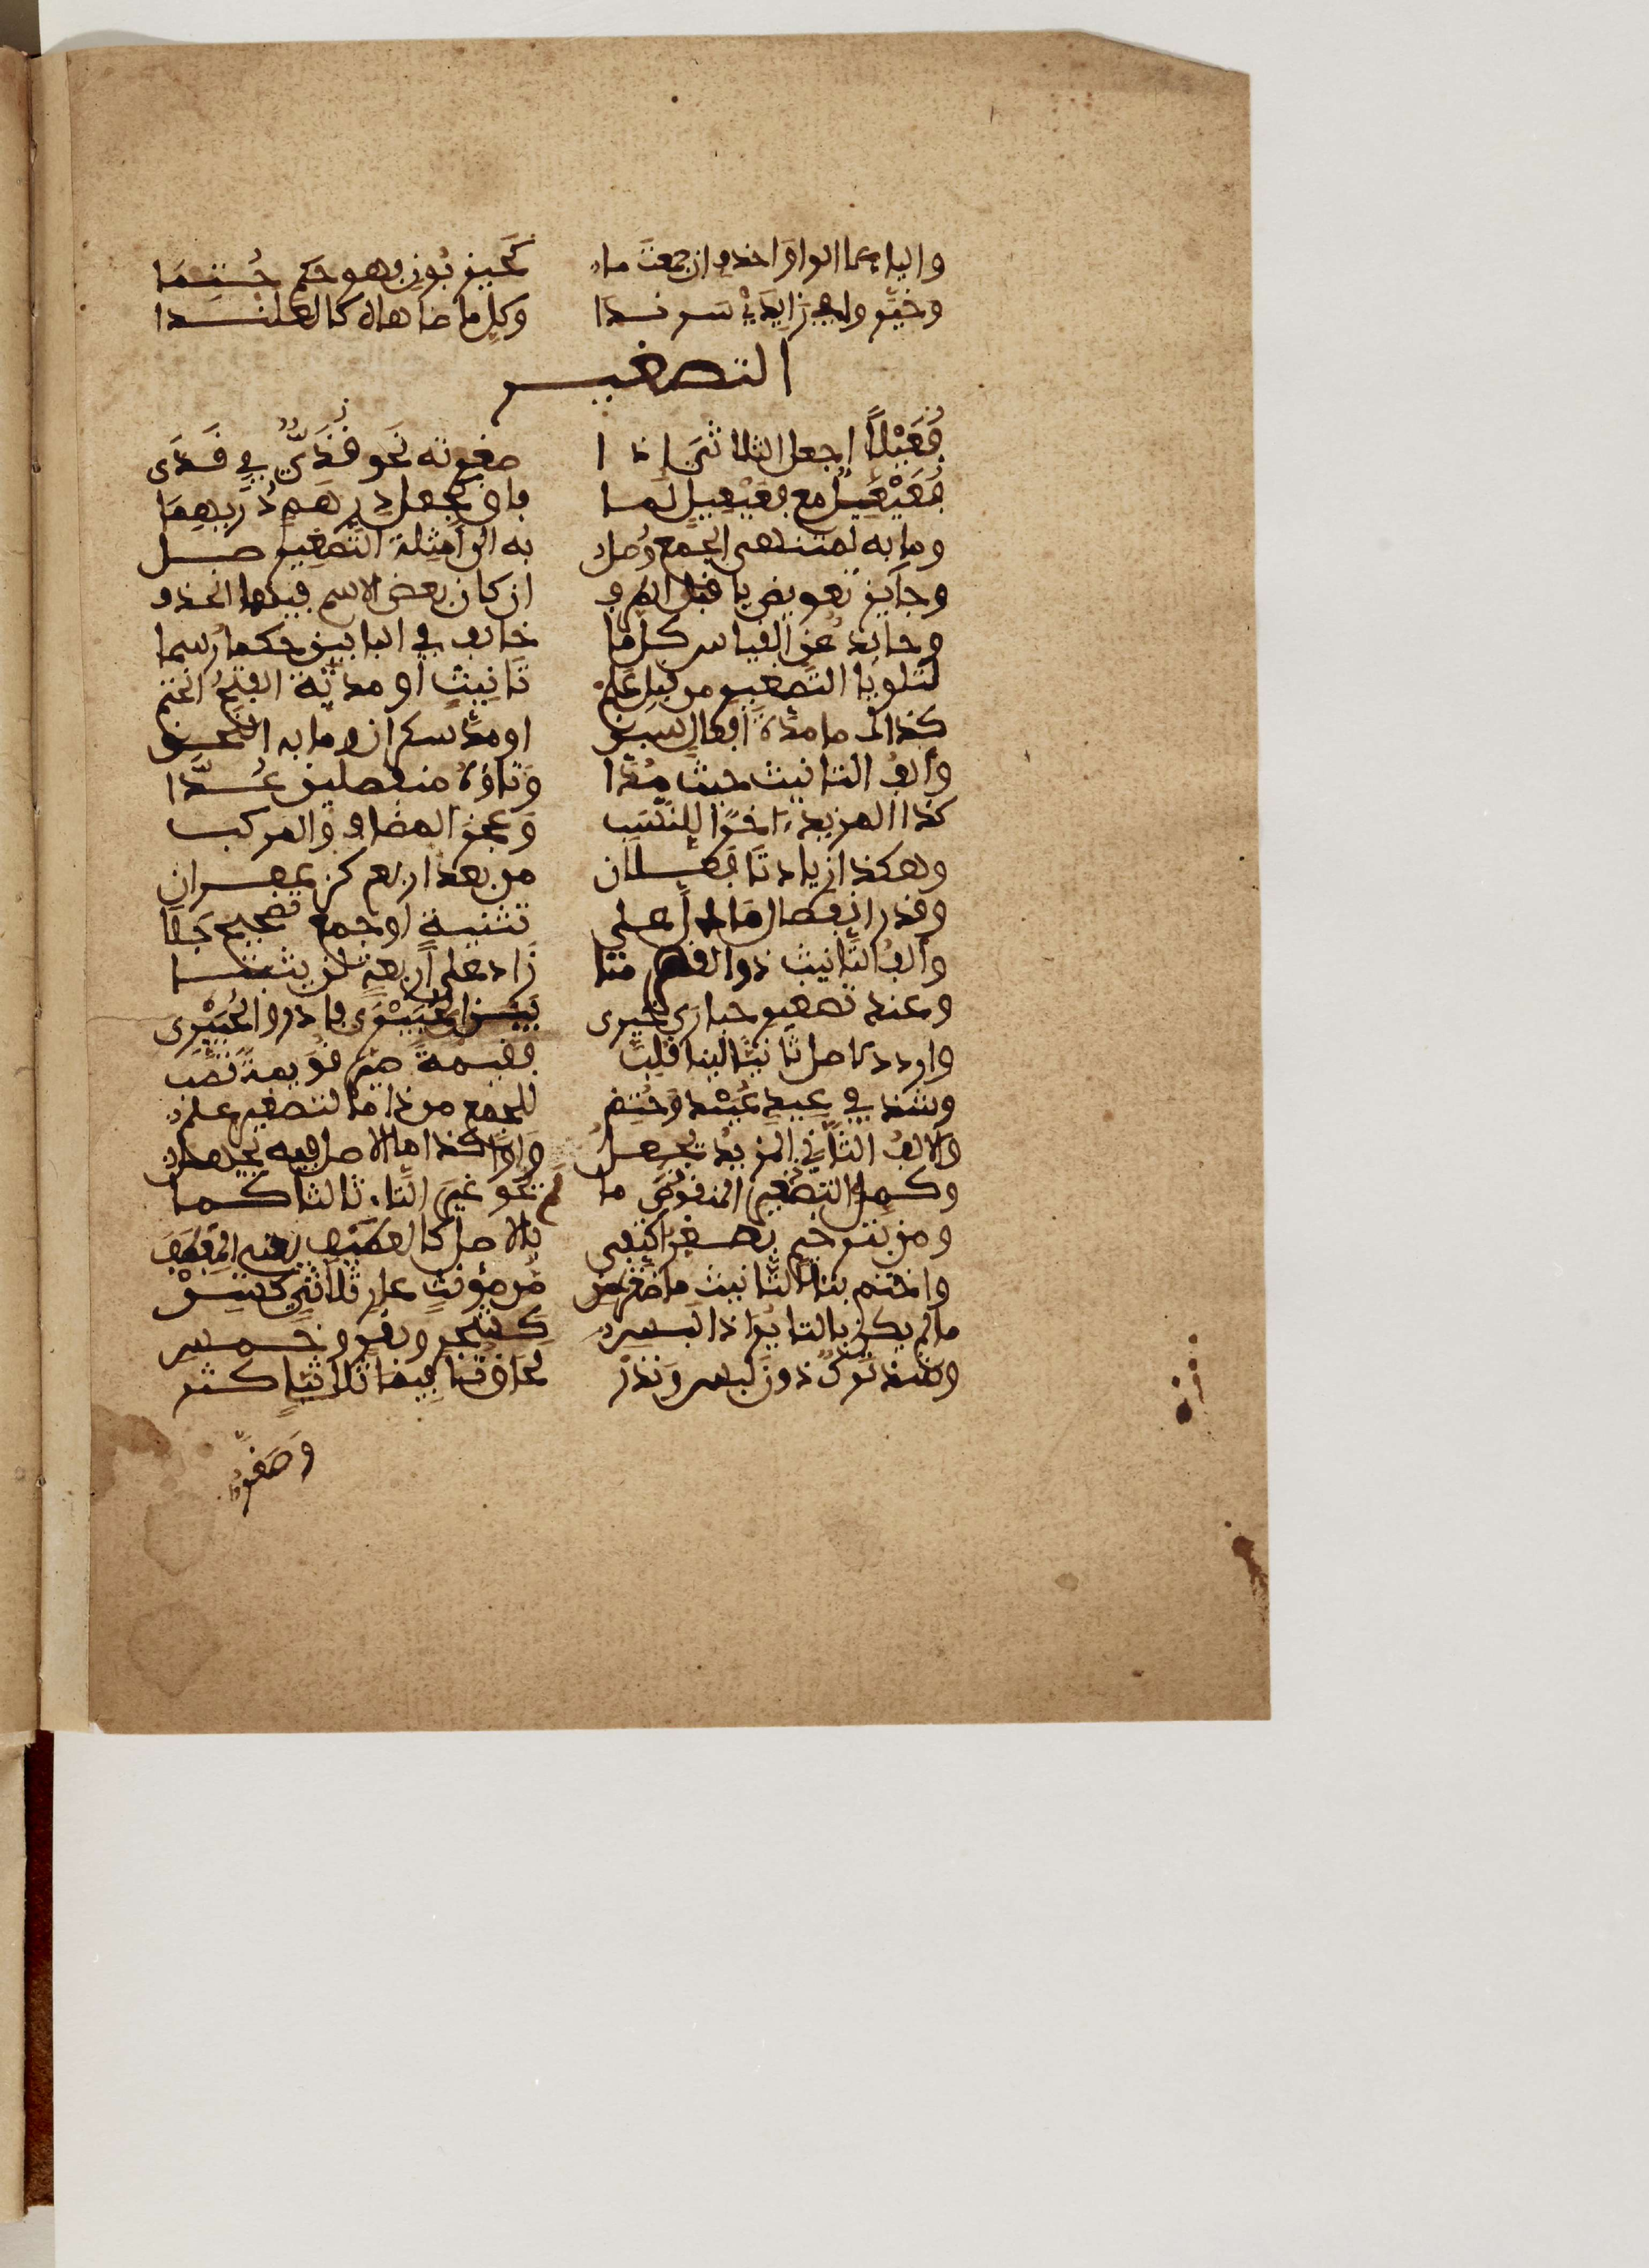 واليا لا الواو احذف ان جمعت ما كحيزبون فهو حكم حتما
وخيروا في زايدي سرندا وكل ما ضاهاه كالعلندا
التصغير
فعيلا اجعل الثلاثي اذا صغرته نحو قذي في قذى
فعيعل مع فعيعيل لما فاق كجعل درهم دريهما
وما به لمنتهى الجمع وصل به الى امثلة التصغير صل
وجايز تعويض يا قبل الطرف ان كان بعض الاسم فيهما انحذف
وحايد عن القياس كل ما خالف في البابين حكما رسما
لتلو يا التصغير من قبل علم تانيث او مدته الفتح انحتم
كذاك ما مدة افعال سبق او مد سكران وما به التحق
والف التانيث حيث مدا وتاؤه منفصلين عدا
كذا المزيد اخرا للنسب وعجز المضاف والمركب
وهكذا زيادتا فعلان من بعد اربع كزعفران
وقدر انفصال ما دل على تثنية او جمع تصحيح جلا
والف التانيث ذو القصر متى زاد على اربعة لن يثبتا
وعند تصغير حبارى خير بين الحبيرى فادر والحبير
واردد لاصل ثانيا لينا قلب فقيمة صير قويمة تصب
وشذ في عيد عييد وحتم للجمع من ذا ما لتصغير علم
والالف الثاني المزيد يجعل واوا كذا ما الاصل فيه يجهل
وكمل التصغير المنقوص ما لم تحو غير التاء ثالثا كما
ومن بترخيم يصغر اكتفى بالاصل كالعطيف يعني المعطفا
واختم بتا التانيث ما صغرت من مؤنث عار ثلاثي كسن
ما لم يكن بالتا يرا ذا لبس كشجر وبقر وخمس
وشذ ترك دون لبس وندر لحاق تا فيما ثلاثيا كثر
وصغروا